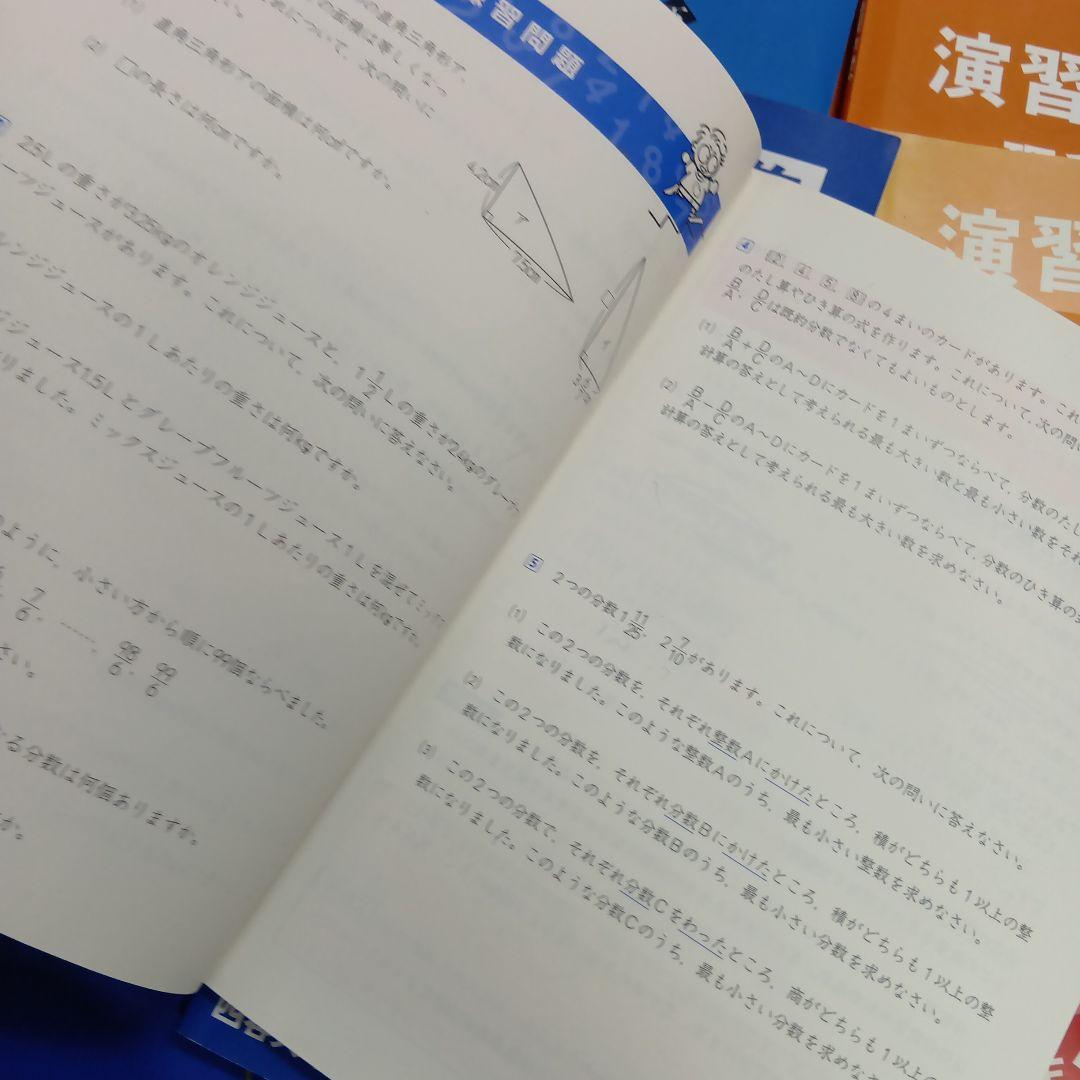 習問題
の直角三角形ア、
の面積は等しくなっ
これについて、次の問いに
(1) 直角三角形アの面積は何cm²ですか。
(2) □の長さは何cmですか。
ア
7.5cm
2.5Lの重さが3.25kgのオレンジジュースと、1 1/2 Lの重さが2.4kgのグレープ
ーツジュースがあります。これについて、次の問いに答えなさい。
レンジジュースの1Lあたりの重さは何kgですか。
ジジュース1.5Lとグレープフルーツジュース1Lを混ぜてミッ
りました。ミックスジュースの1Lあたりの重さは何kgですか。
のように、小さい方から順に99個ならべました。
7/6, ……, 98/6, 99/6
さい。
る分数は何個ありますか。
か。
4 2 4 5 8 の4まいのカードがあります。これ
のたし算やひき算の式を作ります。これについて、次の問い
B/A, D/C は既約分数でなくてもよいものとします。
(1) B/A + D/C のA〜Dにカードを1まいずつならべて、分数のたし
計算の答えとして考えられる最も大きい数と最も小さい数をそれ
(2) B/A − D/C のA〜Dにカードを1まいずつならべて、分数のひき算の
計算の答えとして考えられる最も大きい数を求めなさい。
5 2つの分数1 11/25, 2 7/10 があります。これについて、次の問いに答えなさい。
(1) この2つの分数を、それぞれ整数Aにかけたところ、積がどちらも1以上の整
数になりました。このような整数Aのうち、最も小さい整数を求めなさい。
(2) この2つの分数を、それぞれ分数Bにかけたところ、積がどちらも1以上の整
数になりました。このような分数Bのうち、最も小さい分数を求めなさい。
(3) この2つの分数で、それぞれ分数Cをわったところ、商がどちらも1以上の
数になりました。このような分数Cのうち、最も小さい分数を求めな
演習
演習